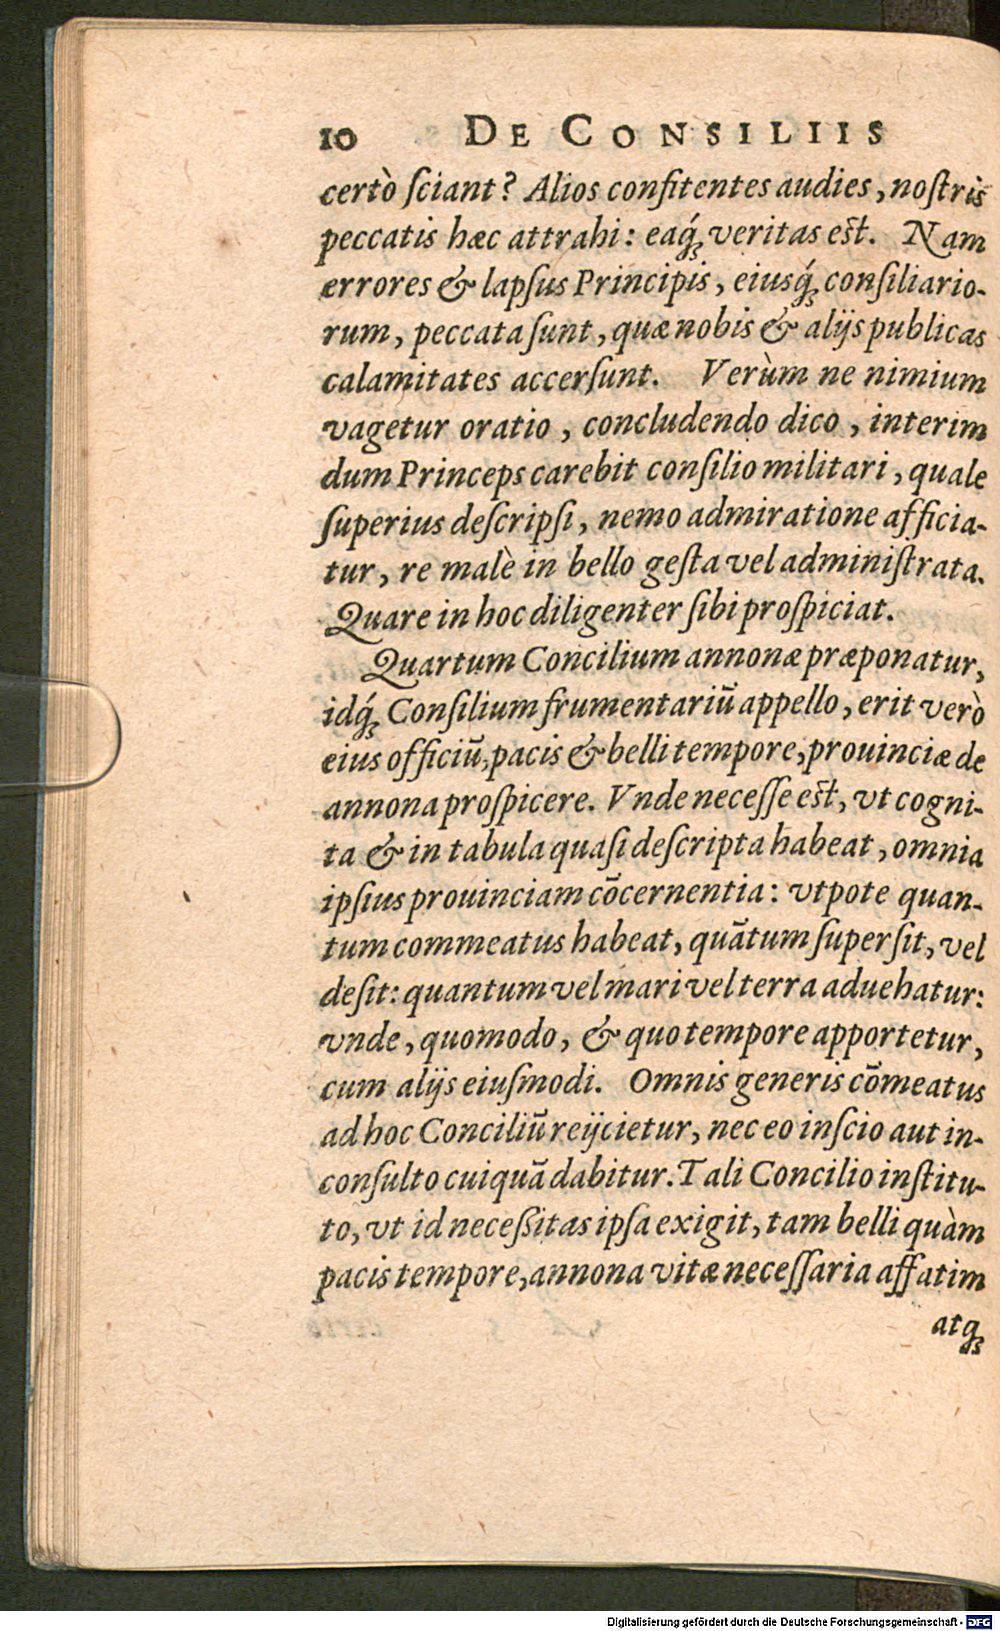 10 DE CONSILIIS
certò ſciant? Alios confitentes audies, noſtris
peccatis hæc attrahi: eaq́ꝫ veritas eſt. Nam
errores & lapſus Principis, eiusq́ꝫ conſiliario-
rum, peccata ſunt, quæ nobis & alijs publicas
calamitates accerſunt. Verùm ne nimium
vagetur oratio, concludendo dico, interim
dum Princeps carebit conſilio militari, quale
ſuperius deſcripſi, nemo admiratione afficia-
tur, re malè in bello geſta vel adminiſtrata.
Quare in hoc diligenter ſibi proſpiciat.
Quartum Concilium annonæ præponatur,
idq́ꝫ Conſilium frumentariũ appello, erit verò
eius officiũ, pacis & belli tempore, prouinciæ de
annona proſpicere. Vnde neceſſe eſt, vt cogni-
ta & in tabula quaſi deſcripta habeat, omnia
ipſius prouinciam cõcernentia: vtpote quan-
tum commeatus habeat, quãtum ſuperſit, vel
deſit: quantum vel mari vel terra aduehatur:
vnde, quomodo, & quo tempore apportetur,
cum alijs eiuſmodi. Omnis generis cõmeatus
ad hoc Conciliũ reijcietur, nec eo inſcio aut in-
conſulto cuiquã dabitur. Tali Concilio inſtitu-
to, vt id neceßitas ipſa exigit, tam belli quàm
pacis tempore, annona vitæ neceſſaria affatim
atqꝫ
Digitalisierung gefördert durch die Deutsche Forschungsgemeinschaft - DFG